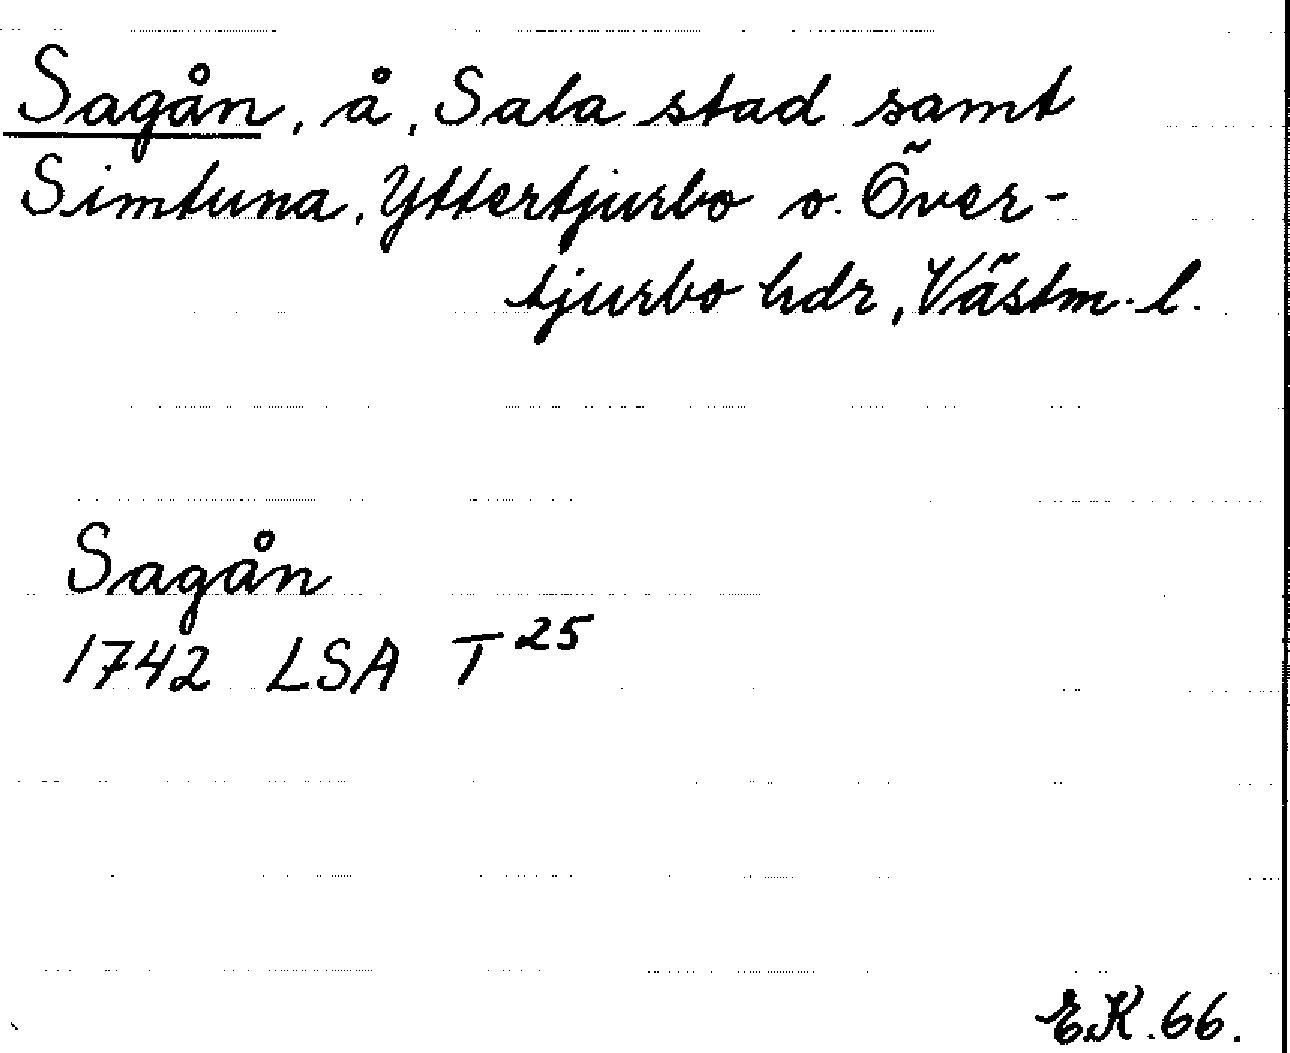 Sagån, å, Sala stad samt
Simtuna, Yttertjurbo o. Över-
tjurbo hdr, Västm. l.
Sagån
1742 LSA T 25
E.K. 66.